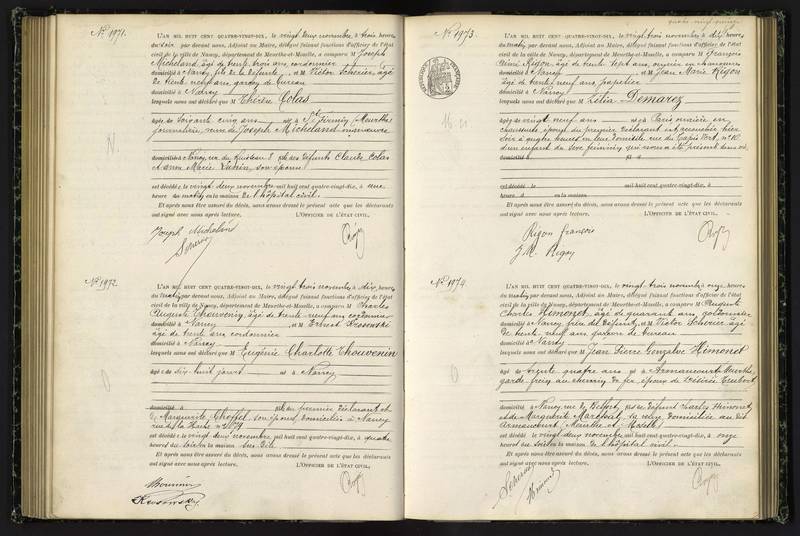 No 1971.
L'AN MIL HUIT CENT QUATRE-VINGT-DIX, le vingt deux novembre, à trois heures,
du soir par devant nous, Adjoint au Maire, délégué faisant fonctions d'officier de l'état
civil de la ville de Nancy, département de Meurthe-et-Moselle, a comparu M Joseph
Micheland, âgé de trente trois ans, cordonnier
domicilié à Nancy, fils de la défunte, et M Victor Scherier, âgé
de trente neuf ans, garçon de bureau
domicilié à Nancy
lesquels nous ont déclaré que M Thérèse Colas
âgée de soixante cinq ans née à St Firmin (Meurthe)
journalière, veuve de Joseph Micheland
domiciliée à Nancy, rue du Ruisseau 8 fille des défunts Claude Colas
et Anne Marie son épouse
est décédée le vingt deux novembre mil huit cent quatre-vingt-dix, à une
heure du matin en la maison de l'hôpital civil.
Et après nous être assuré du décès, nous avons dressé le présent acte que les déclarants
ont signé avec nous après lecture. L'OFFICIER DE L'ÉTAT CIVIL,
Joseph Micheland
N.
No 1972
L'AN MIL HUIT CENT QUATRE-VINGT-DIX, le vingt trois novembre, à dix heures,
du matin par devant nous, Adjoint au Maire, délégué faisant fonctions d'officier de l'état
civil de la ville de Nancy, département de Meurthe-et-Moselle, a comparu M Charles
Auguste Thouvenin, âgé de trente neuf ans
domicilié à Nancy, et M Ernest
âgé de trente ans, cordonnier
domicilié à Nancy
lesquels nous ont déclaré que M Eugénie Charlotte Thouvenin
âgée de dix huit jours née à Nancy
domicilié à fille du premier déclarant et
de Marguerite son épouse, domiciliés à Nancy
rue de la
est décédée le vingt deux novembre mil huit cent quatre-vingt-dix, à quatre
heures du soir en la maison sus dite
Et après nous être assuré du décès, nous avons dressé le présent acte que les déclarants
ont signé avec nous après lecture. L'OFFICIER DE L'ÉTAT CIVIL,
quatre vingt
No 1973
L'AN MIL HUIT CENT QUATRE-VINGT-DIX, le vingt trois novembre à dix heures,
du matin par devant nous, Adjoint au Maire, délégué faisant fonctions d'officier de l'état
civil de la ville de Nancy, département de Meurthe-et-Moselle, a comparu M François
Aimé Rigon, âgé de trente sept ans, ouvrier en chaussures
domicilié à Nancy, et M Jean Marie Rigon
âgé de neuf ans, papetier
domicilié à Nancy
lesquels nous ont déclaré que M Zélia Demarez
âgée de vingt neuf ans née à Paris ouvrière en
chaussures épouse du premier déclarant est accouchée hier
soir à quatre heures en leur domicile rue du Tapis Vert, no 10
d'un enfant du sexe féminin qui nous a été présenté sans vie.
domicilié à fil d
est décédé le mil huit cent quatre-vingt-dix, à
heure d en la maison
Et après nous être assuré du décès, nous avons dressé le présent acte que les déclarants
ont signé avec nous après lecture. L'OFFICIER DE L'ÉTAT CIVIL,
Rigon françois
J M Rigon
No 1974
L'AN MIL HUIT CENT QUATRE-VINGT-DIX, le vingt trois novembre à onze heures,
du matin par devant nous, Adjoint au Maire, délégué faisant fonctions d'officier de l'état
civil de la ville de Nancy, département de Meurthe-et-Moselle, a comparu M Auguste
Charles Himonet, âgé de quarante ans
domicilié à Nancy frère du défunt, et M Victor Scherier âgé
de trente neuf ans garçon de bureau
domicilié à Nancy
lesquels nous ont déclaré que M Jean Pierre Gonzalve Himonet
âgé de trente quatre ans né à Armaucourt Meurthe
garde-frein au chemin de fer, époux de
domicilié à Nancy rue de Belfort, fils de défunt Charles Himonet
et de Marguerite sa veuve domiciliée au dit
Armaucourt (Meurthe et Moselle)
est décédé le vingt deux novembre mil huit cent quatre-vingt-dix, à onze
heures du soir en la maison de l'hôpital civil.
Et après nous être assuré du décès, nous avons dressé le présent acte que les déclarants
ont signé avec nous après lecture. L'OFFICIER DE L'ÉTAT CIVIL,
Himonet